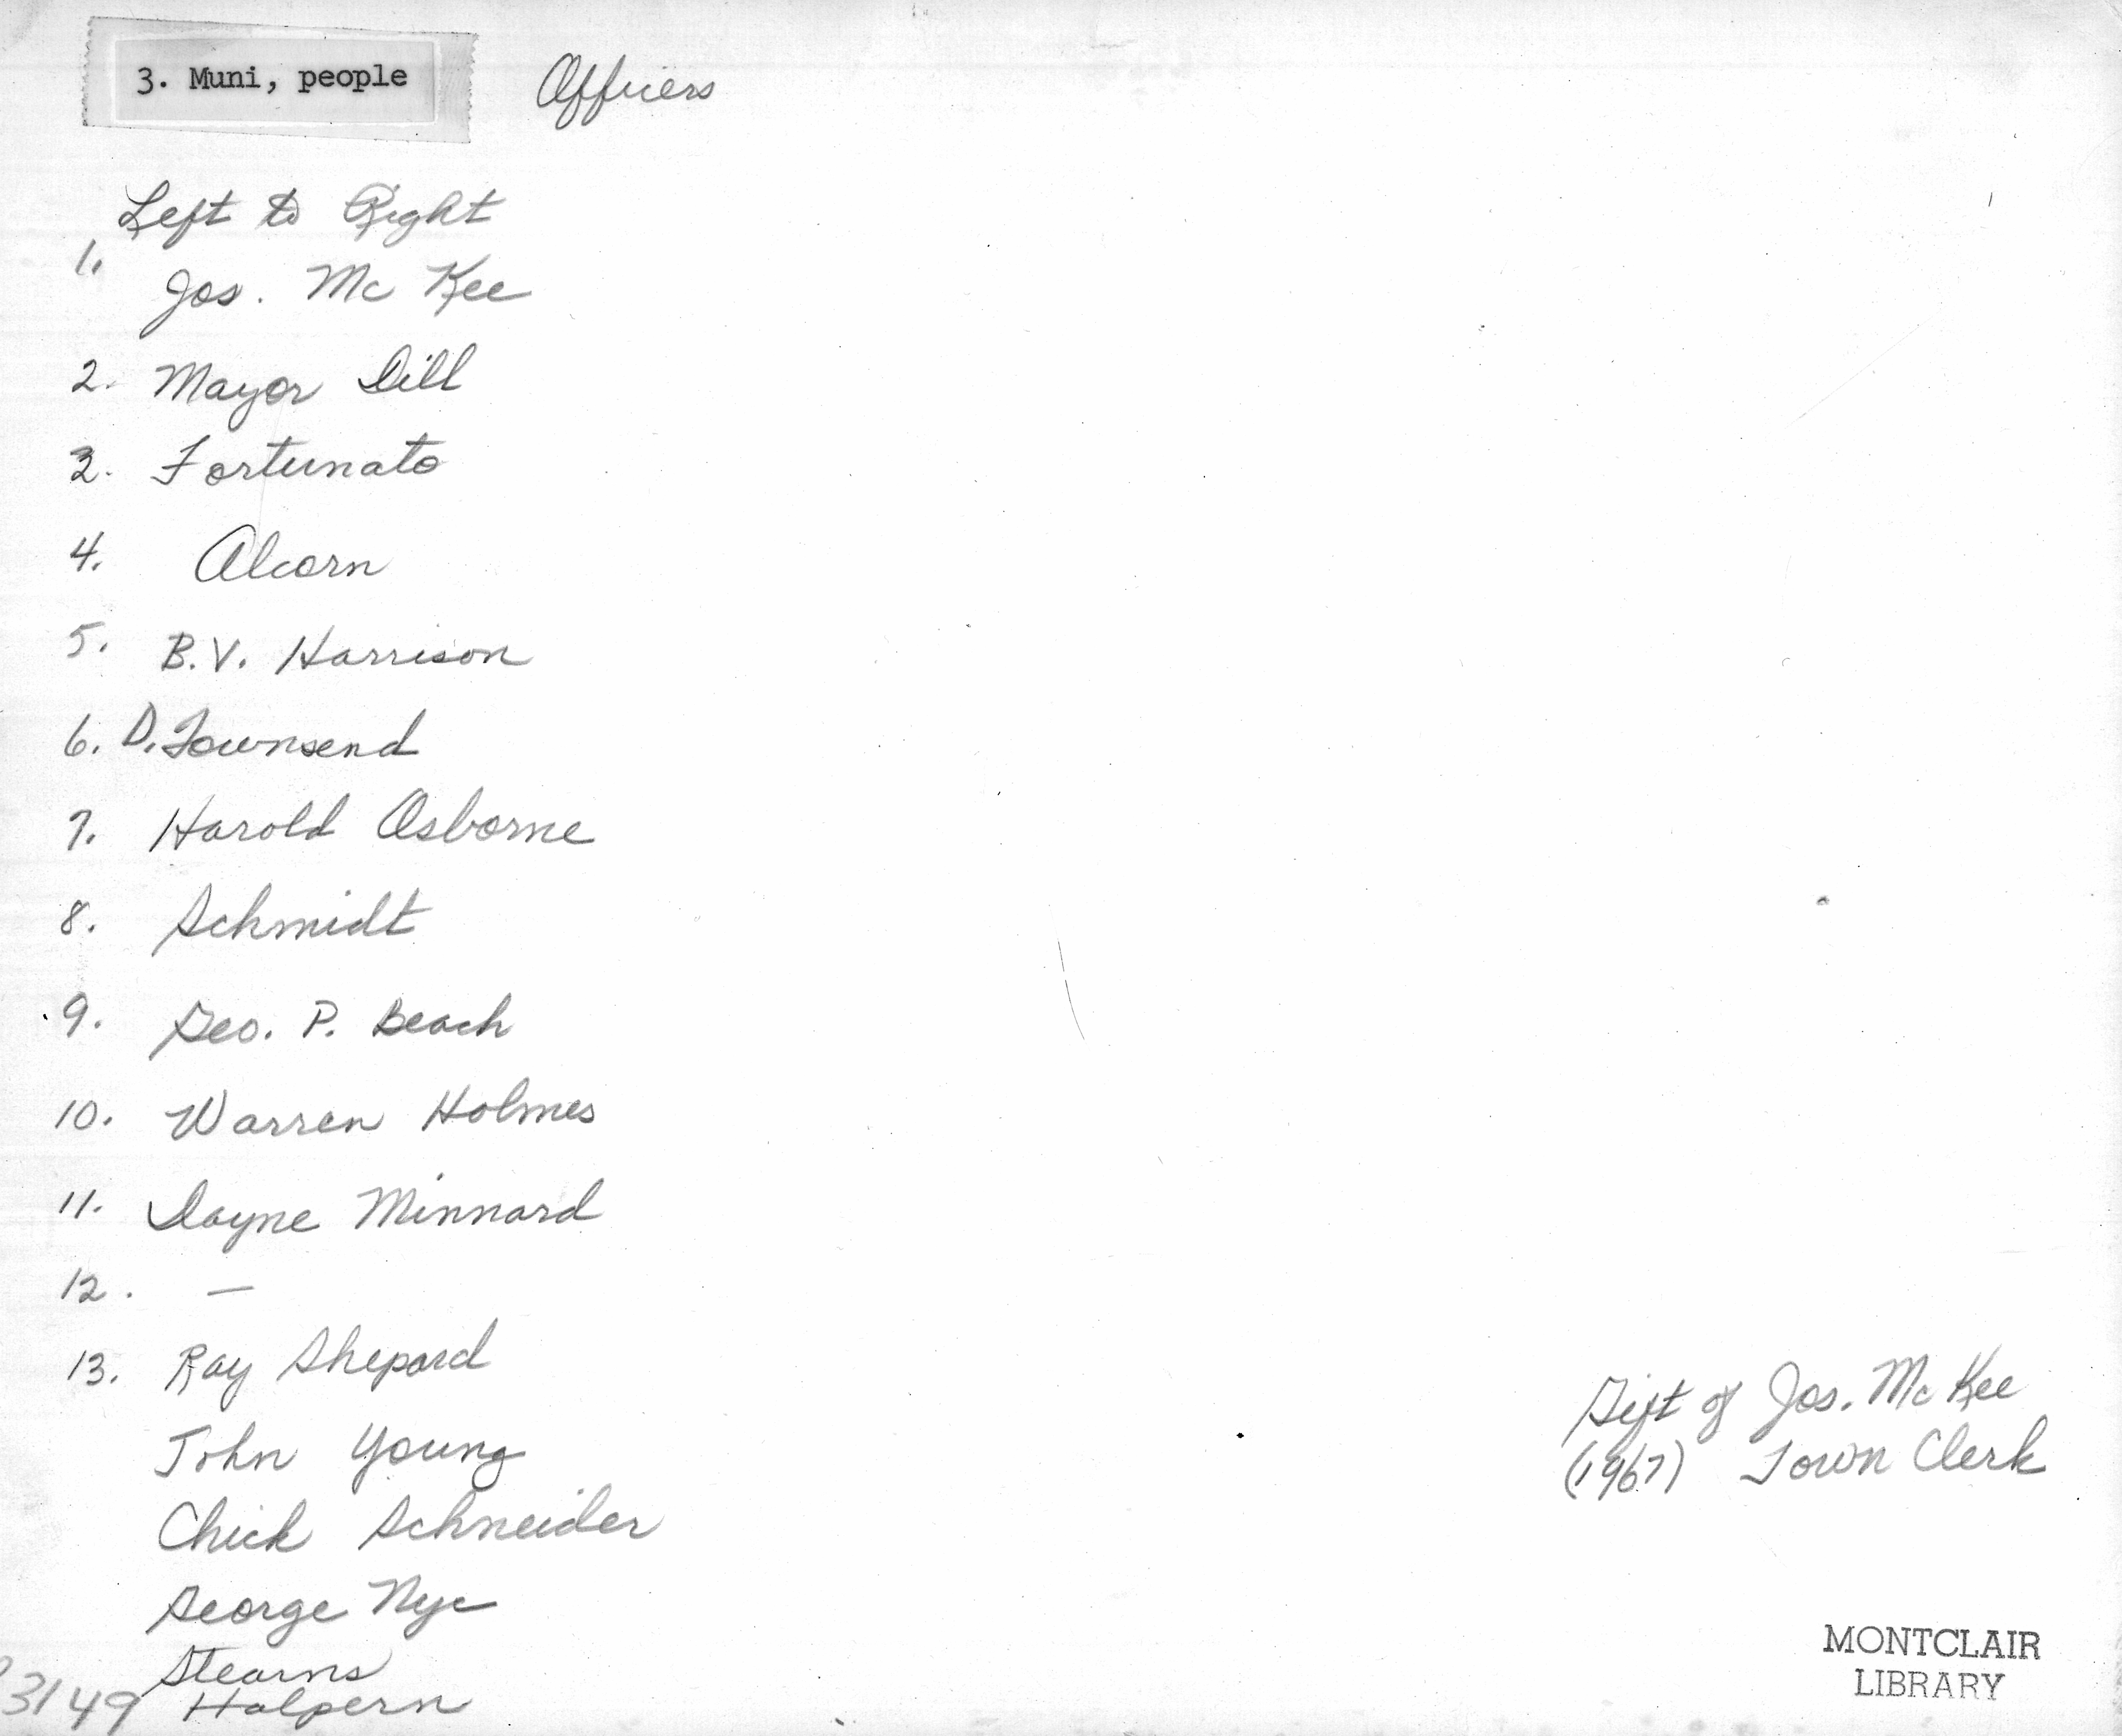 3. Muni, people Officers
Left to Right
1. Jos. Mc Kee
2. Mayor Dill
3. Fortunato
4. Alcorn
5. B.V. Harrison
6. D. Townsend
7. Harold Osborne
8. Schmidt
9. Geo. P. Beach
10. Warren Holmes
11. Dayne Minnard
12. —
13. Ray Shepard
John Young
Chick Schneider
George Nye
Stearns
3149 Halpern
Gift of Jos. Mc Kee
(1967) Town Clerk
MONTCLAIR
LIBRARY